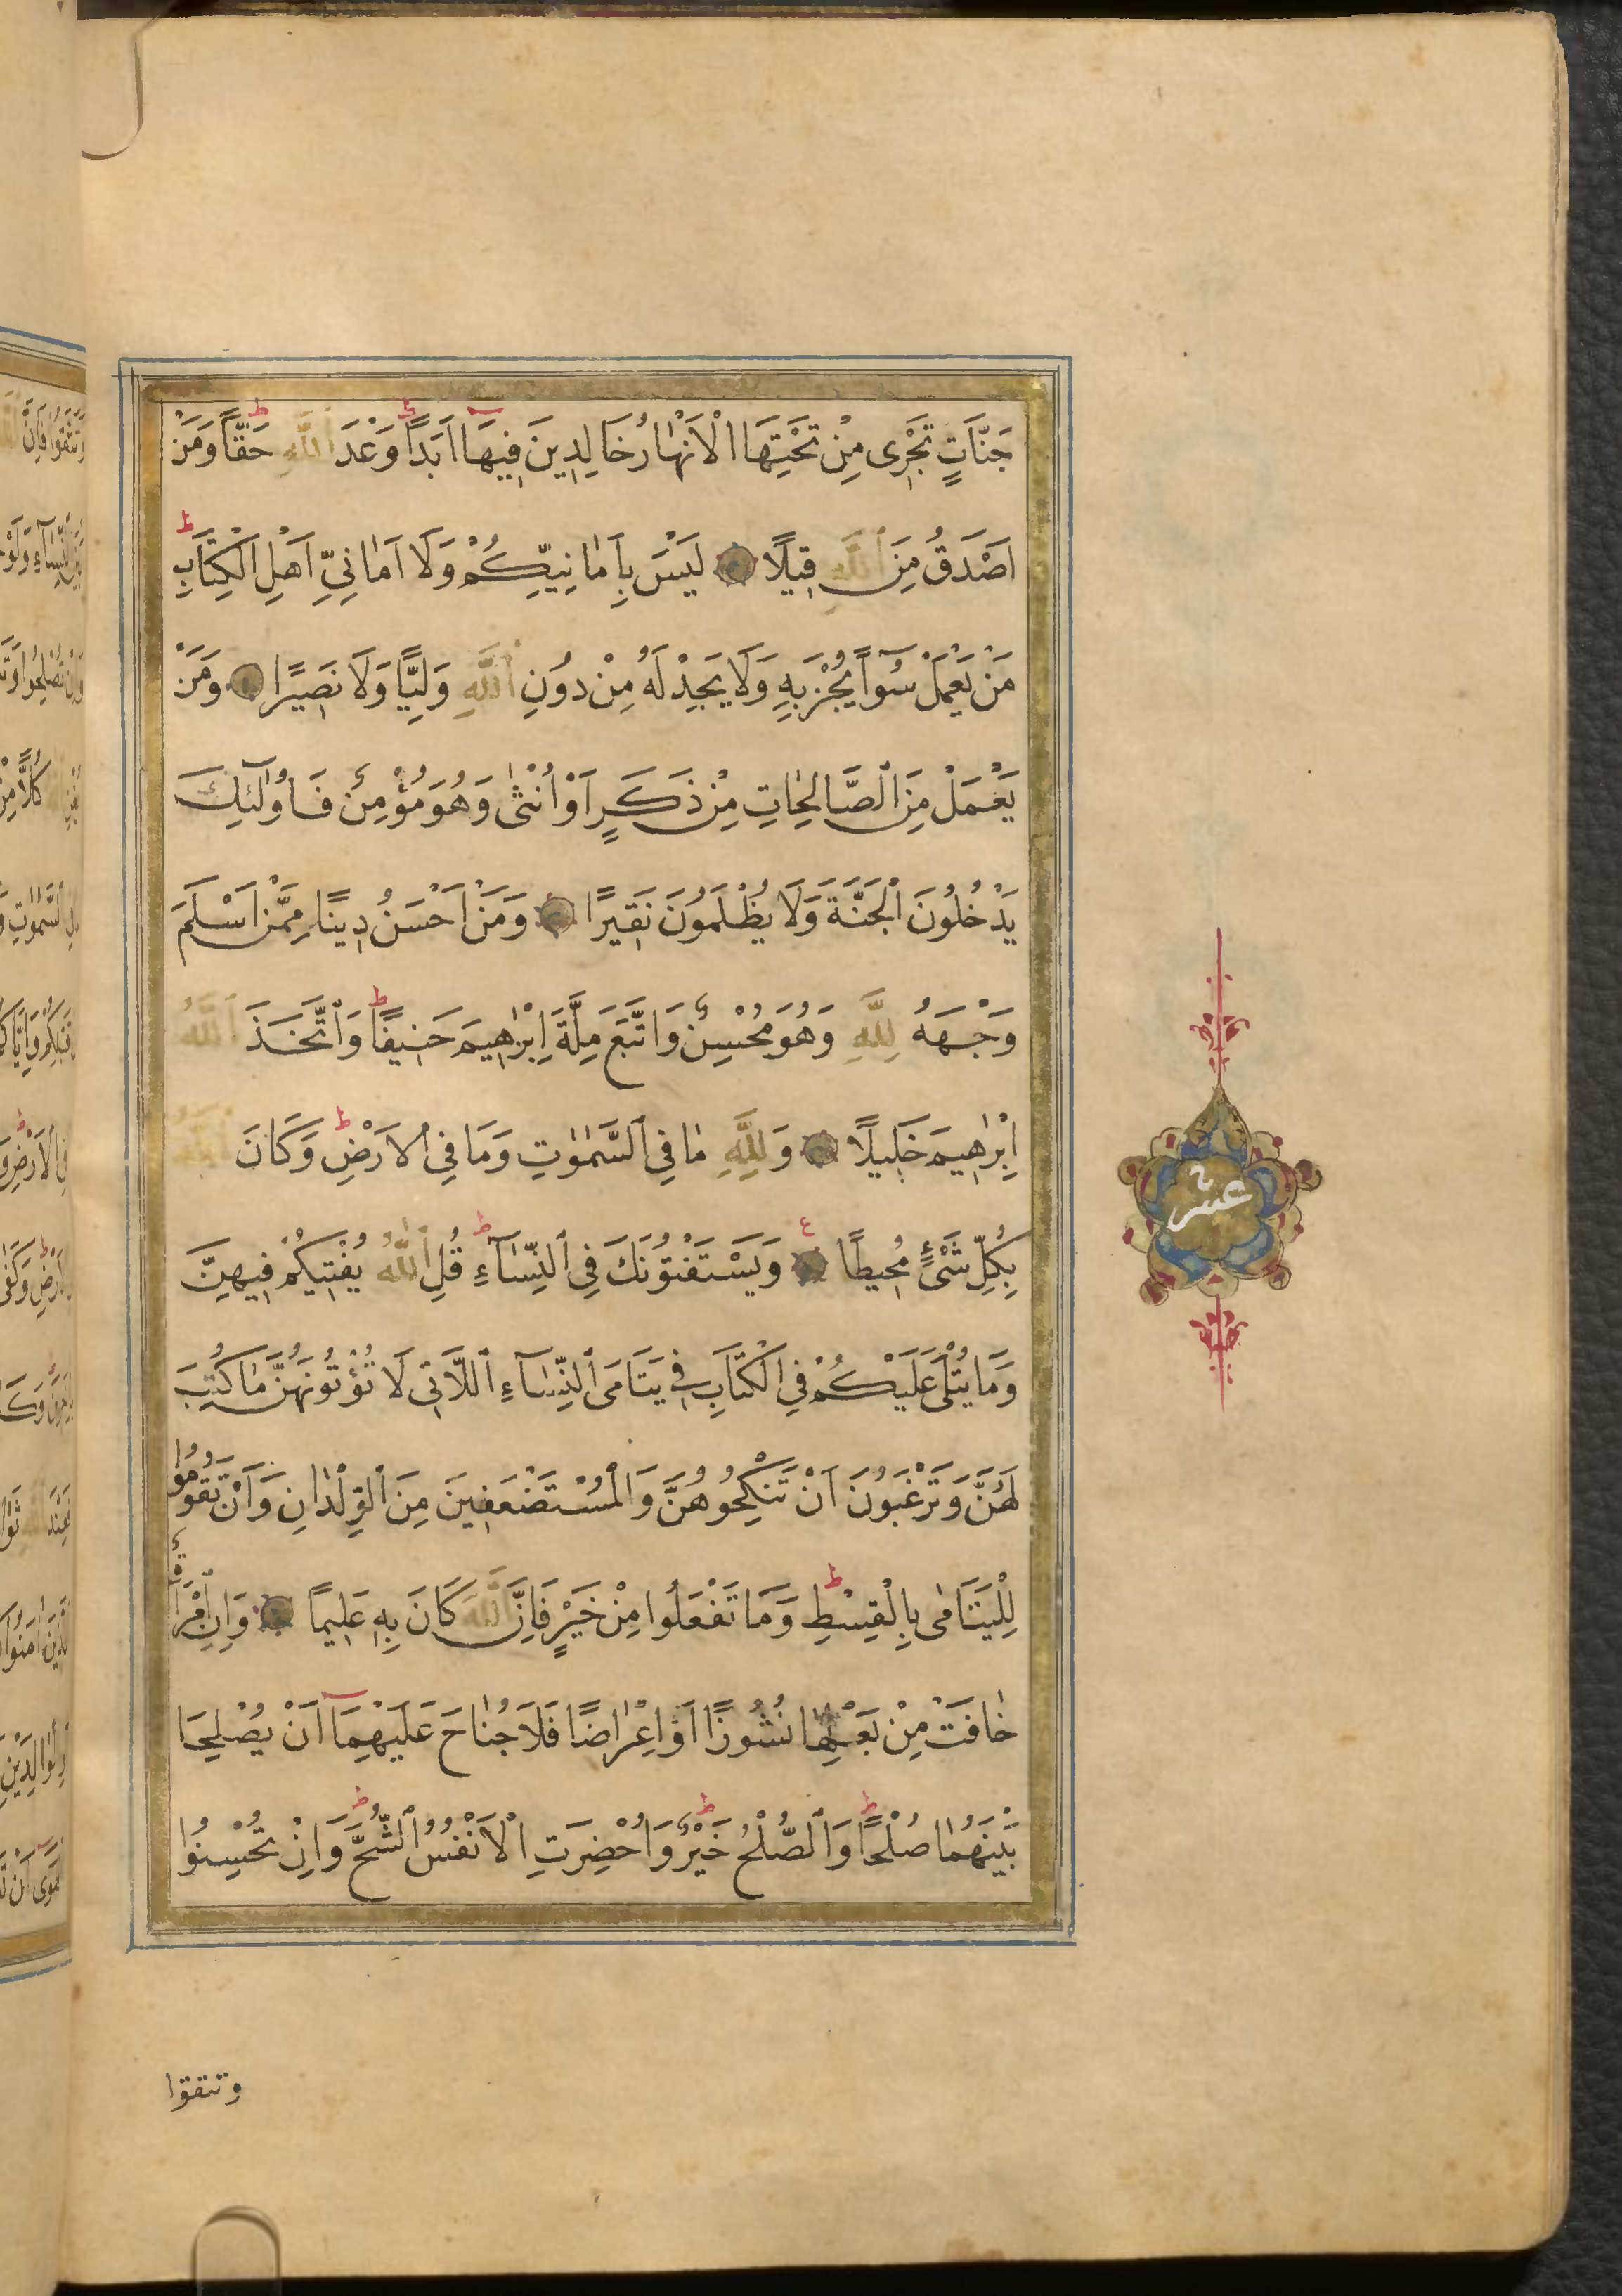 جَنَّاتٍ تَجْرِى مِنْ تَحْتِهَا الْاَنْهَارُ خَالِدِينَ فِيهَا اَبَدًا وَعْدَ اللّٰهِ حَقًّا وَمَنْ
اَصْدَقُ مِنَ اللّٰهِ قِيلًا لَيْسَ بِاَمَانِيِّكُمْ وَلَا اَمَانِىِّ اَهْلِ الْكِتَابِ
مَنْ يَعْمَلْ سُوٓاً يُجْزَ بِهِ وَلَا يَجِدْ لَهُ مِنْ دُونِ اللّٰهِ وَلِيًّا وَلَا نَصِيرًا وَمَنْ
يَعْمَلْ مِنَ الصَّالِحَاتِ مِنْ ذَكَرٍ اَوْ اُنْثٰى وَهُوَ مُؤْمِنٌ فَاُولٰٓئِكَ
يَدْخُلُونَ الْجَنَّةَ وَلَا يُظْلَمُونَ نَقِيرًا وَمَنْ اَحْسَنُ دِينًا مِمَّنْ اَسْلَمَ
وَجْهَهُ لِلّٰهِ وَهُوَ مُحْسِنٌ وَاتَّبَعَ مِلَّةَ اِبْرٰهِيمَ حَنِيفًا وَاتَّخَذَ اللّٰهُ
اِبْرٰهِيمَ خَلِيلًا وَلِلّٰهِ مَا فِى السَّمٰوٰتِ وَمَا فِى الْاَرْضِ وَكَانَ اللّٰهُ
بِكُلِّ شَىْءٍ مُحِيطًا وَيَسْتَفْتُونَكَ فِى النِّسَاءِ قُلِ اللّٰهُ يُفْتِيكُمْ فِيهِنَّ
وَمَا يُتْلٰى عَلَيْكُمْ فِى الْكِتَابِ فِى يَتَامَى النِّسَاءِ اللَّاتِى لَا تُؤْتُونَهُنَّ مَا كُتِبَ
لَهُنَّ وَتَرْغَبُونَ اَنْ تَنْكِحُوهُنَّ وَالْمُسْتَضْعَفِينَ مِنَ الْوِلْدَانِ وَاَنْ تَقُومُوا
لِلْيَتَامٰى بِالْقِسْطِ وَمَا تَفْعَلُوا مِنْ خَيْرٍ فَاِنَّ اللّٰهَ كَانَ بِهِ عَلِيمًا وَاِنِ امْرَاَةٌ
خَافَتْ مِنْ بَعْلِهَا نُشُوزًا اَوْ اِعْرَاضًا فَلَا جُنَاحَ عَلَيْهِمَا اَنْ يُصْلِحَا
بَيْنَهُمَا صُلْحًا وَالصُّلْحُ خَيْرٌ وَاُحْضِرَتِ الْاَنْفُسُ الشُّحَّ وَاِنْ تُحْسِنُوا
وتتقوا
عشر